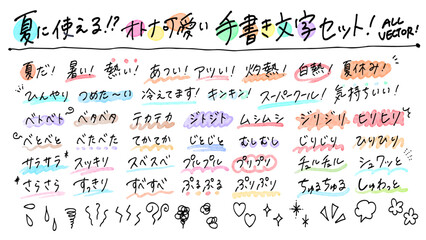 夏に使える!? オトナ可愛い 手書き文字セット! ALL VECTOR!
夏だ! 暑い! 熱い! あつい! アツい! 灼熱! 白熱! 夏休み!
ひんやり つめた〜い 冷えてます! キンキン! スーパークール! 気持ちいい!
ベトベト ベタベタ テカテカ ジトジト ムシムシ ジリジリ ヒリヒリ
べとべと べたべた てかてか じとじと むしむし じりじり ひりひり
サラサラ スッキリ スベスベ プルプル プリプリ チュルチュル シュワッと
さらさら すっきり すべすべ ぷるぷる ぷりぷり ちゅるちゅる しゅわっと